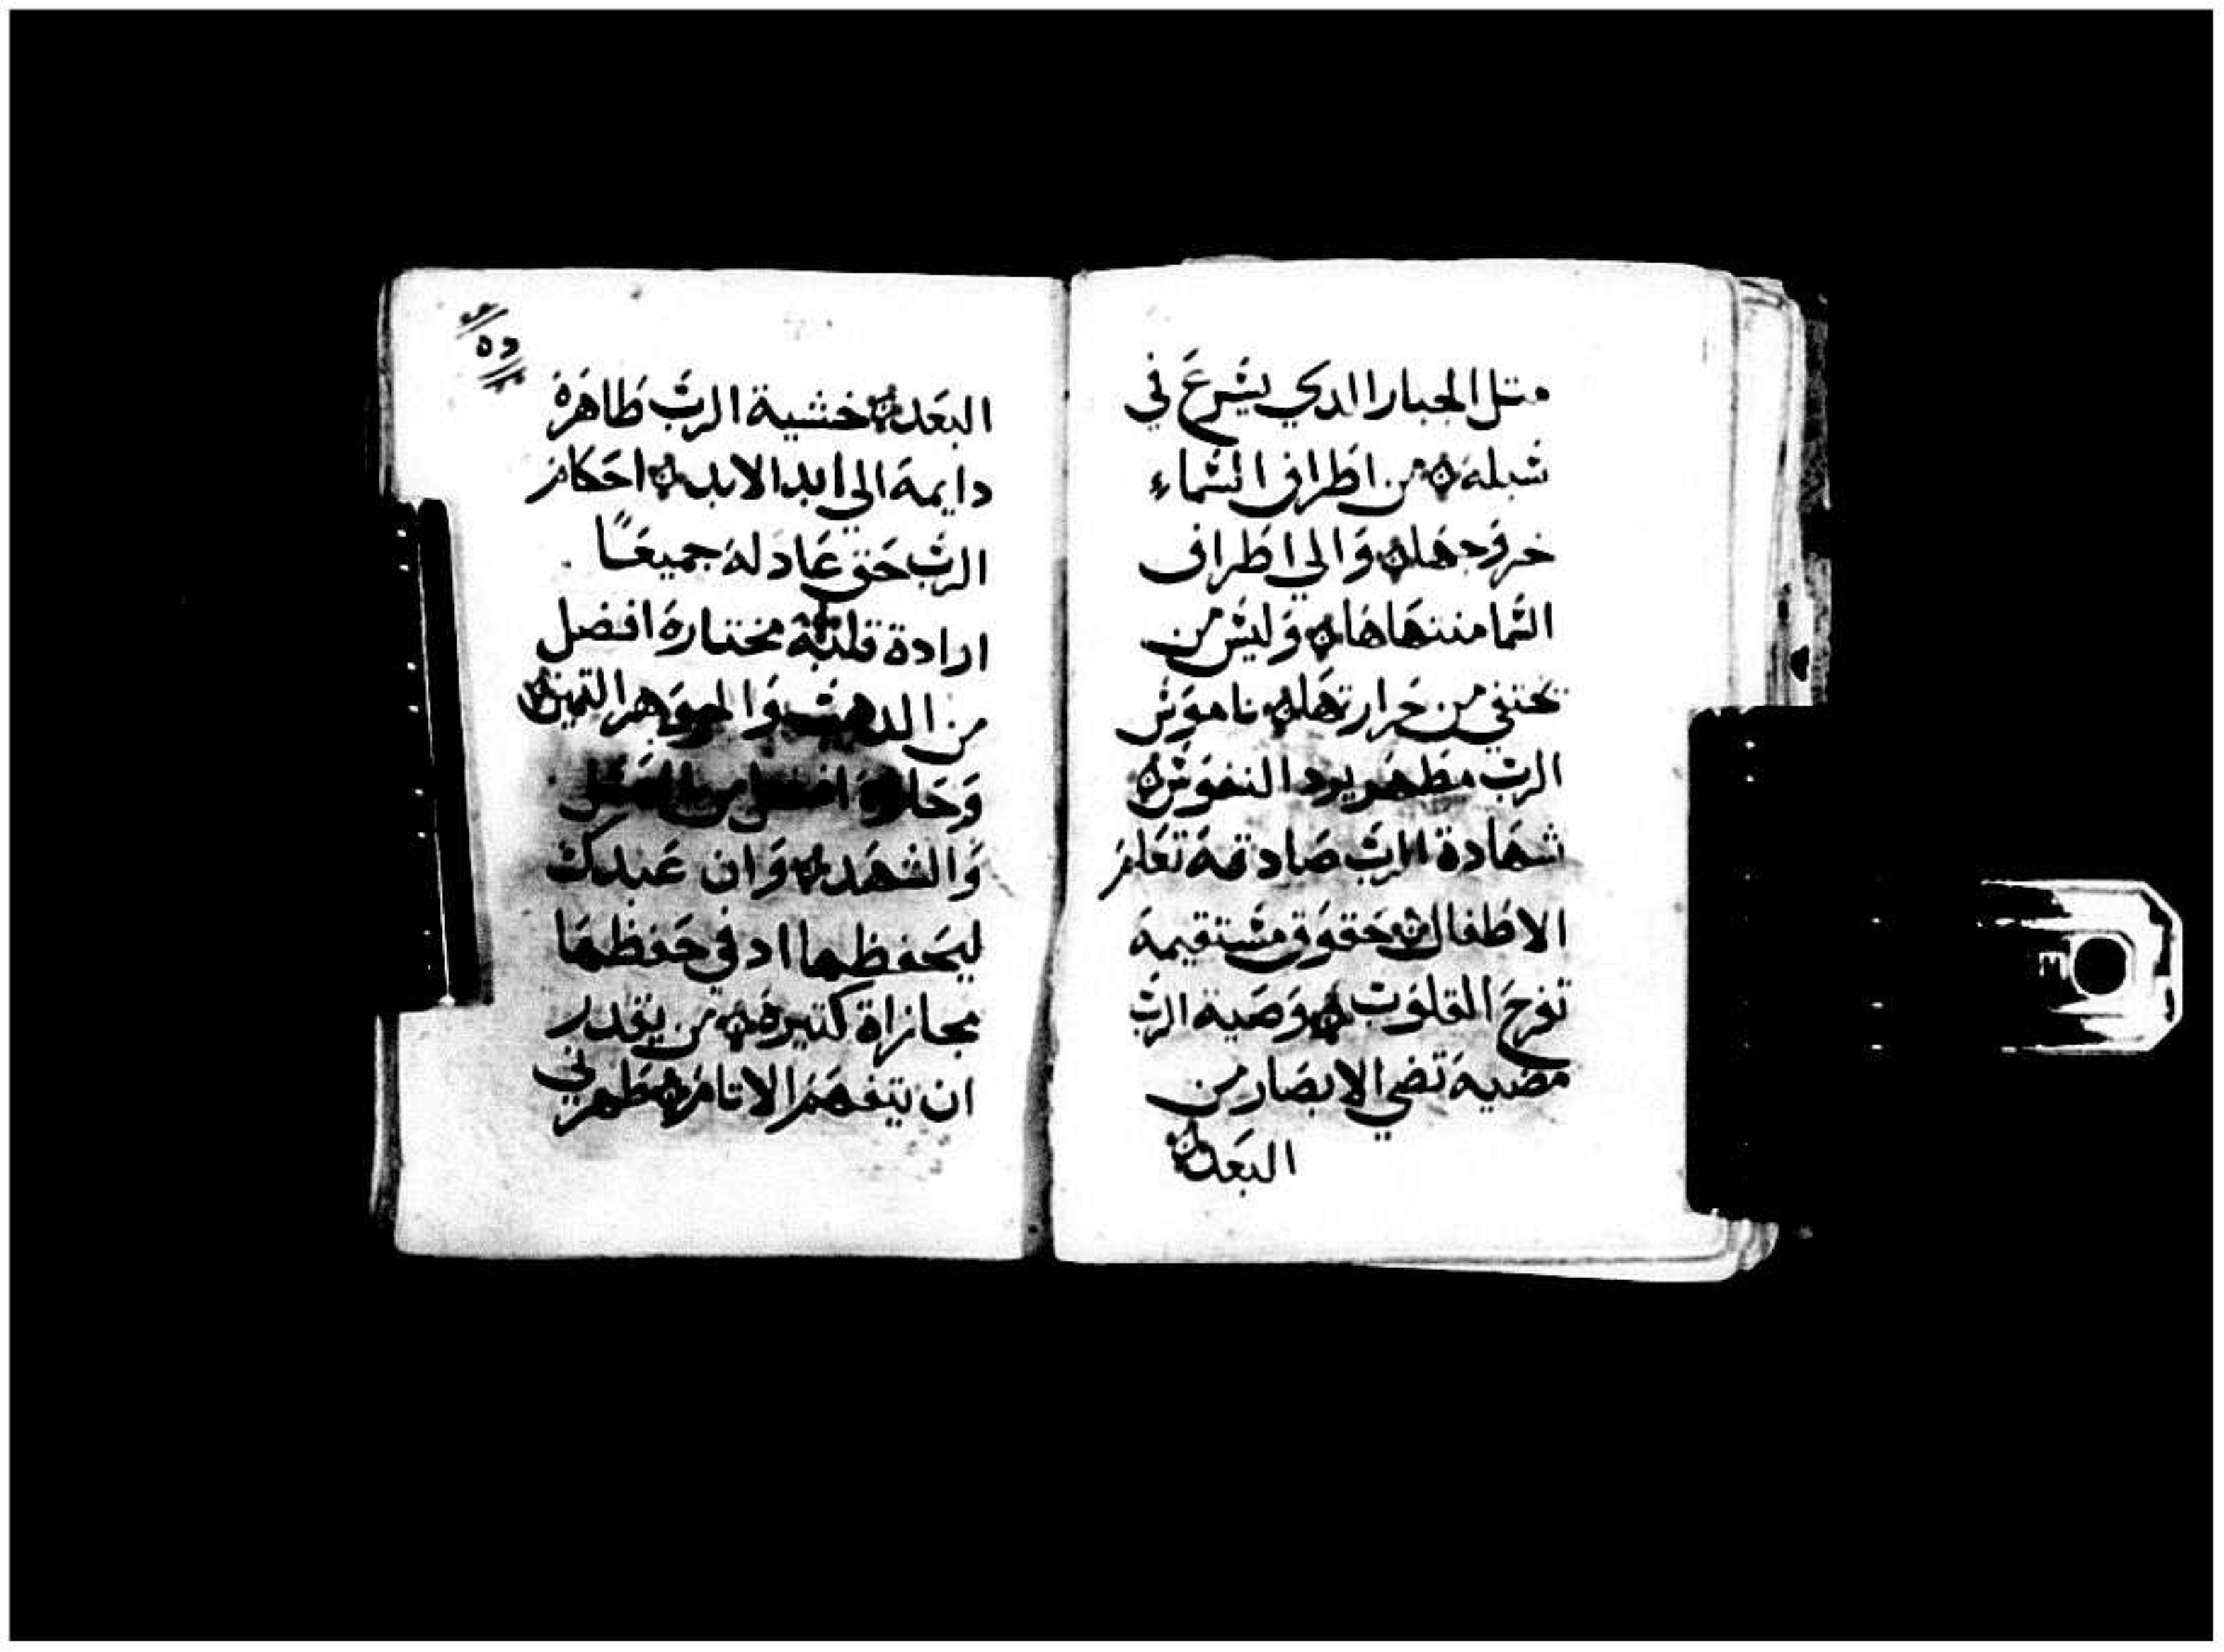 متل الجبار الدي يشرع في
شبله من اطراف الشماء
خروجها والي اطراف
الشما منتهاها وليش من
تختفي من حرارتها ناموش
الرب مطهر يرد النفوش
شهادة الرب صادقه تعلم
الاطفال حقوق مشتقيمه
تفرح القلوب وصية الرب
مضيه تضي الابصار من
البعد
٥٥
البعد خشية الرب طاهرة
دايمه الي ابد الابد احكام
الرب حق عادله جميعًا
ارادة قلبه مختاره افضل
من الدهب والجوهر التمين
وحلوه افضل من العشل
والشهد وان عبدك
ليحفظها اد في حفظها
مجازاة كتيره من يقدر
ان يتفهم الاتام طهرني